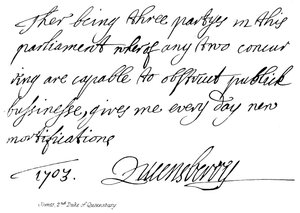 Ther being three partyes in this
parliament wherof any two concur
ring are capable to obstruct publick
bussinesse, gives me every day new
mortifications
1703. Queensberry
James, 2nd Duke of Queensberry